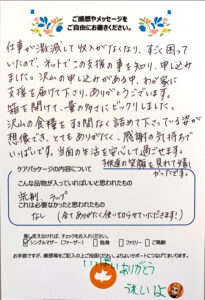 ご感想やメッセージを
ご自由にお書きください。
仕事が激減して収入がなくなり、すごく困って
いたので、ネットでこの支援の事を知り、申し込み
ました。沢山の申し込みがある中、わが家に
支援を届けて下さり、ありがとうございます。
箱を開けて、量の多さにビックリしました。
沢山の食糧をすき間なく詰めて下さっている姿が
想像でき、とてもありがたく、感謝の気持ちで
いっぱいです。当面の生活を安心して過ごせます。
子供達の笑顔を見れて嬉し
かったです。
ケアパッケージの内容について
こんな品物が入っていればいいと思われたもの
洗剤、ラップ
これは必要なかったと思われたもの
なし (全てありがたく使い切らせていただきます!)
差し支えなければ、チェックをお入れください。
シングルマザー(ファーザー) 独身 ファミリー ご高齢
お手数ですが、感想等をご記入の上ご投函ください。よりよいサポートにつなげてまいります。
いっぱいありがとう
うれしいよ